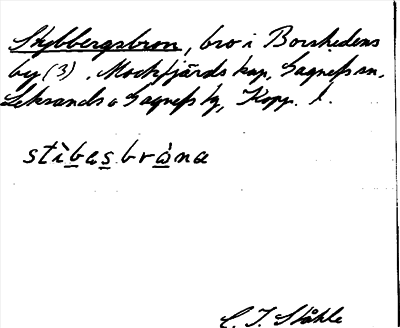 Stybbergsbron, bro i Borshedens
by (3). Mockfjärds kap, Gagnefs sn,
Leksands o Gagnefs tg, Kopp. l.
stìbasbrȧna
C. I. Ståhle